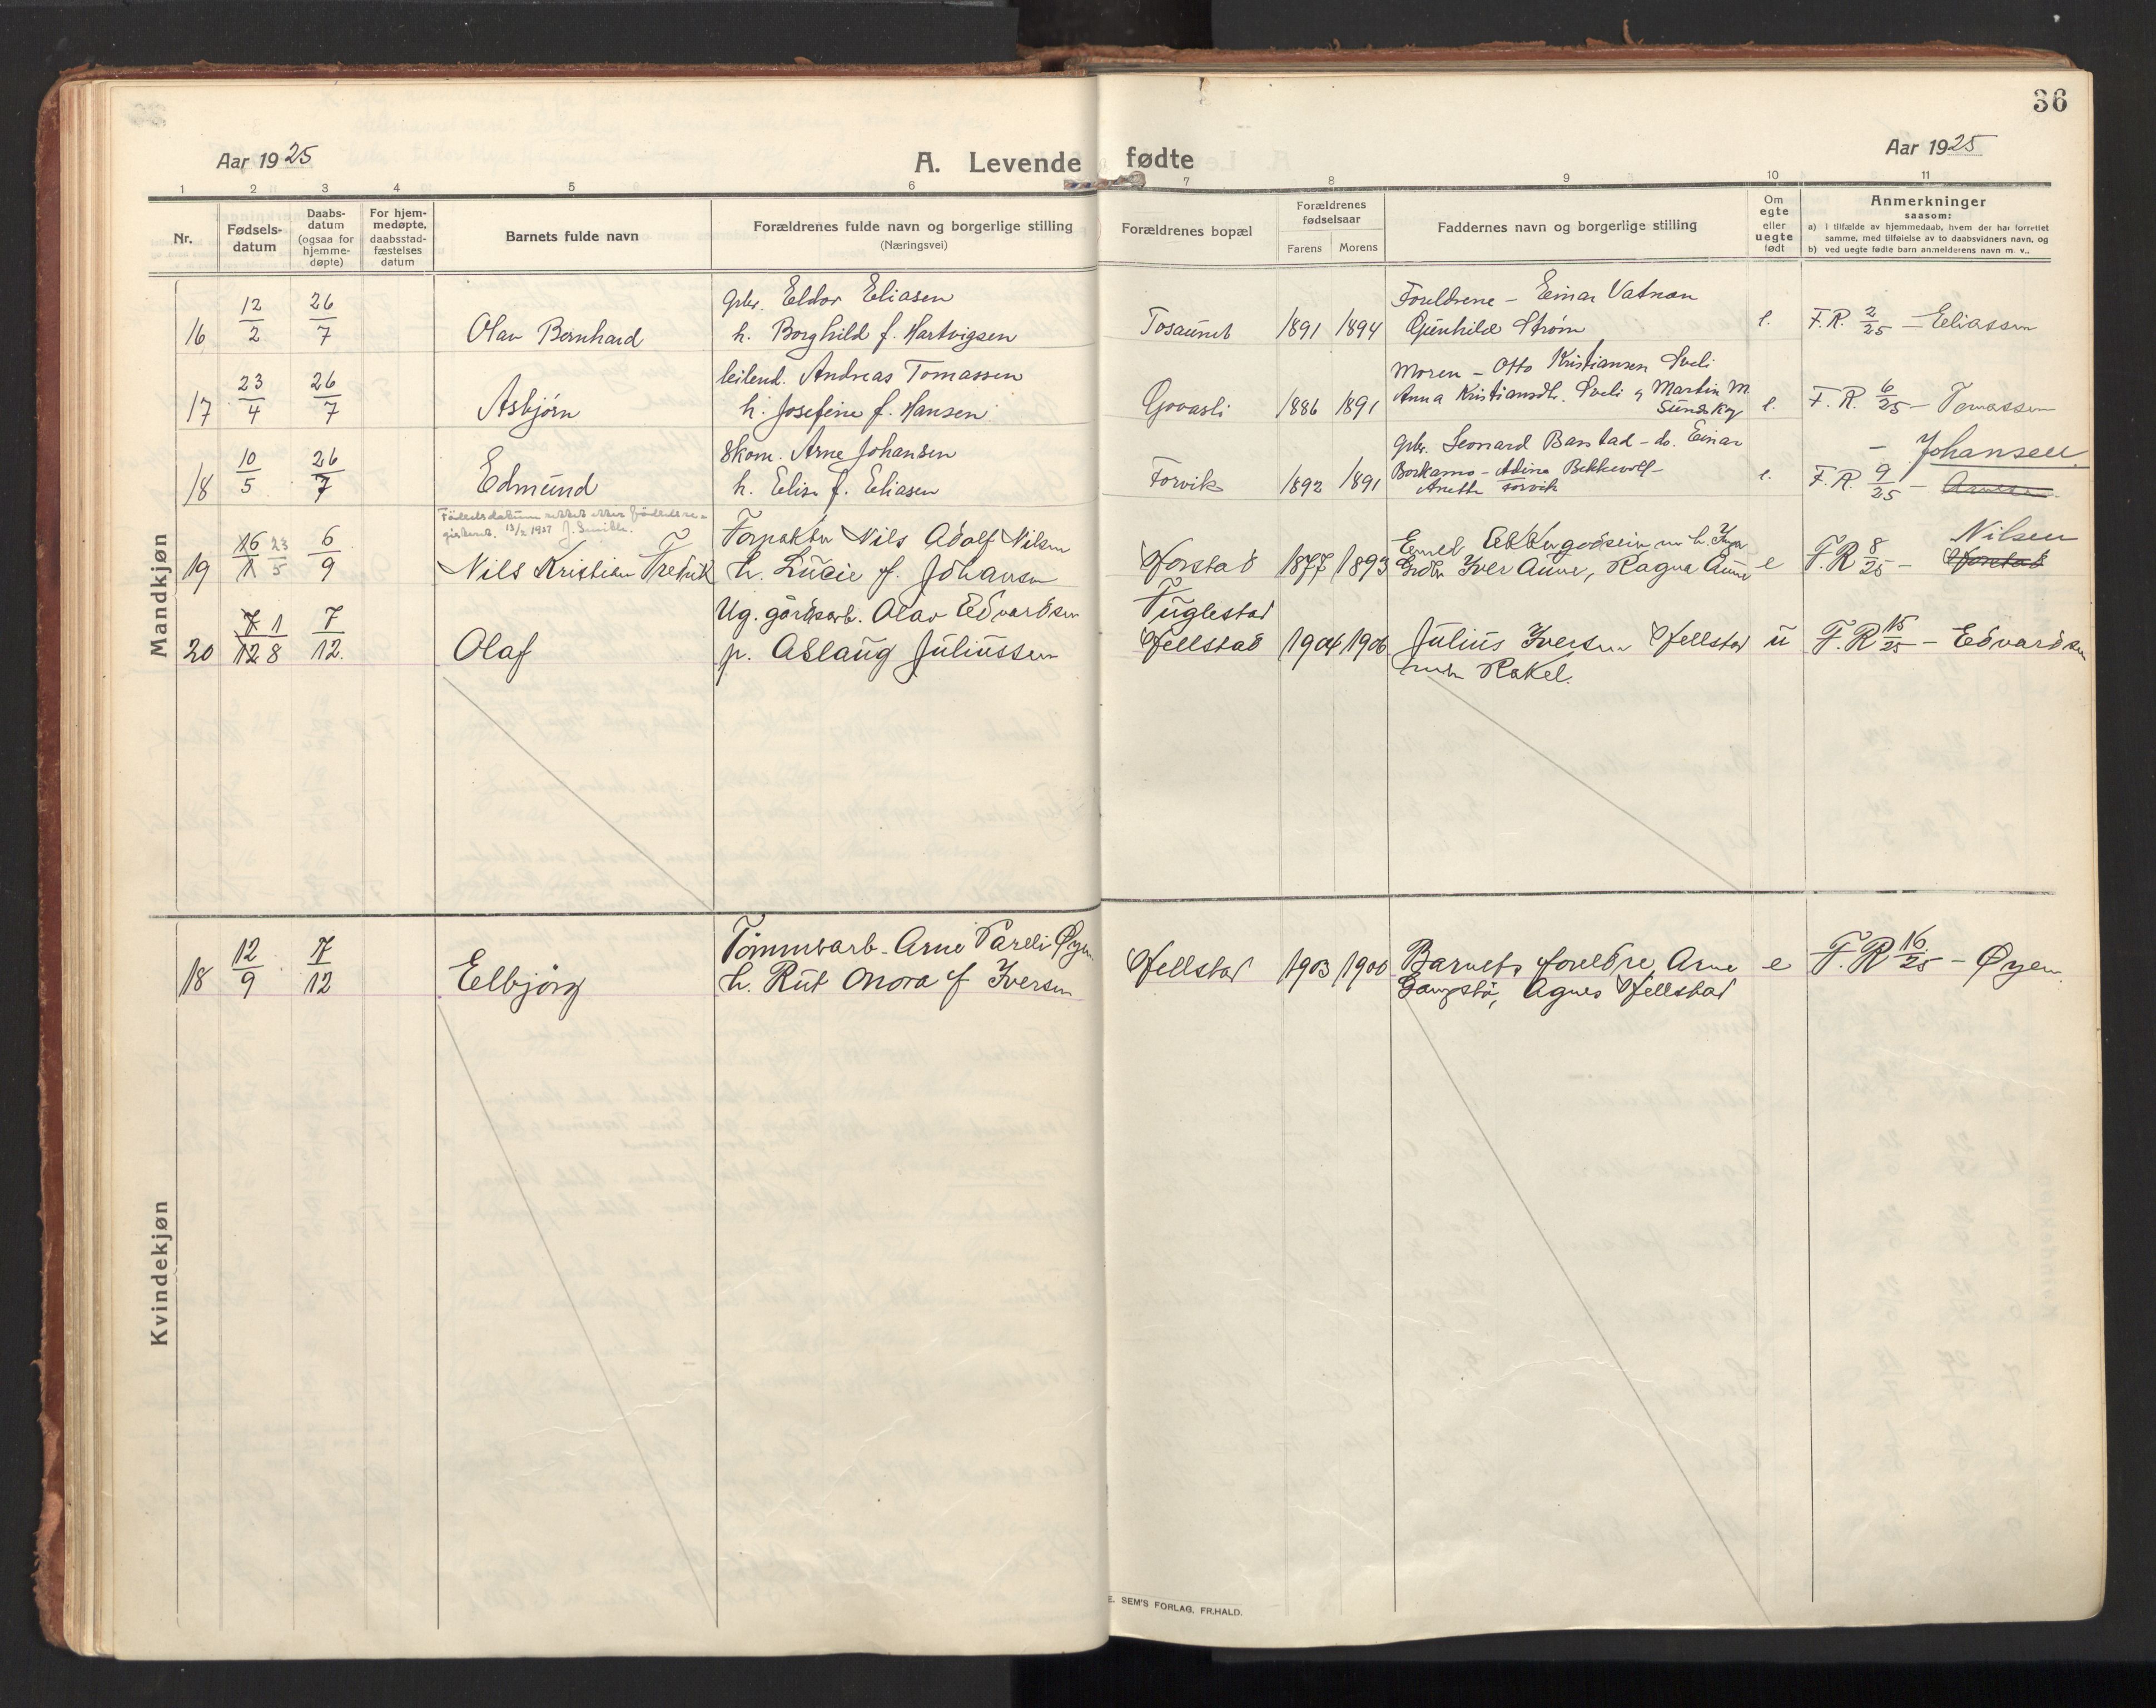 36
Aar 1925
A. Levende fødte
Aar 1925
1 2 3 4 5 6 7 8 9 10 11
Nr.
Fødsels-
datum
Daabs-
datum
(ogsaa for
hjemme-
døpte)
For hjem-
medøpte,
daabsstad-
fæstelses
datum
Barnets fulde navn
Forældrenes fulde navn og borgerlige stilling
(Næringsvei)
Forældrenes bopæl
Forældrenes
fødselsaar
Farens Morens
Faddernes navn og borgerlige stilling
Om
egte
eller
uegte
født
Anmerkninger
saasom:
a) i tilfælde av hjemmedaab, hvem der har forrettet
samme, med tilføielse av to daabsvidners navn, og
b) ved uegte fødte barn anmelderens navn m. v..
Mandkjøn
16 12/2 26/7 Olav Bernhard
gbr. Eldor Eliasen
h. Borghild f. Hartvigsen
Tosaunet 1891 1894
Foreldrene - Einar Vatnan
Gunhild Strøm
e. F.R. 2/25 - Eliassen
17 23/4 26/7 Asbjørn
leilend. Andreas Tomassen
h. Josefine f. Hansen
Govasli 1886 1891
Moren - Otto Kristiansen Sveli
Anna Kristiansdtr. Sveli og Martin M.
e. F.R. 6/25 - Tomassen
18 10/5 26/7 Edmund
Skom. Arne Johansen
h. Elise f. Eliasen
Forvik 1892 1891
gbr. Leonard Barstad - do. Einar
Borkamo - Adina Bekkevoll -
Anette Forvik
e. F.R. 9/25 - Johansen
Fødselsdatum rettet etter fødselsre-
gisteret. 13/2 1957
19 16/1 23/5 6/9 Nils Kristian Fredrik
Forpakter Nils Adolf Nilsen
h. Lucie f. Johansen
Horstad 1877 1893
Iver Aune, Ragna Aune
e F.R 8/25 - Nilsen
Horstad
20 7/12 1/8 7/12. Olaf
Ug. gårdsarb. Olav Edvardsen
p. Aslaug Juliussen
Fuglestad
Hellstad 1904 1906
Julius Iversen Hellstad
Rakel.
u F.R 15/25 - Edvardsen
Kvindekjøn
18 12/9 7/12 Eelbjørg
Tømmerarb. Arne Pareli Øyen
h. Rut Nora f Iversen
Hellstad 1903 1900
Barnets foreldre, Arne
Gangstø, Agnes Hellstad
e F.R 16/25 - Øyen
E. SEM'S FORLAG. FR.HALD.